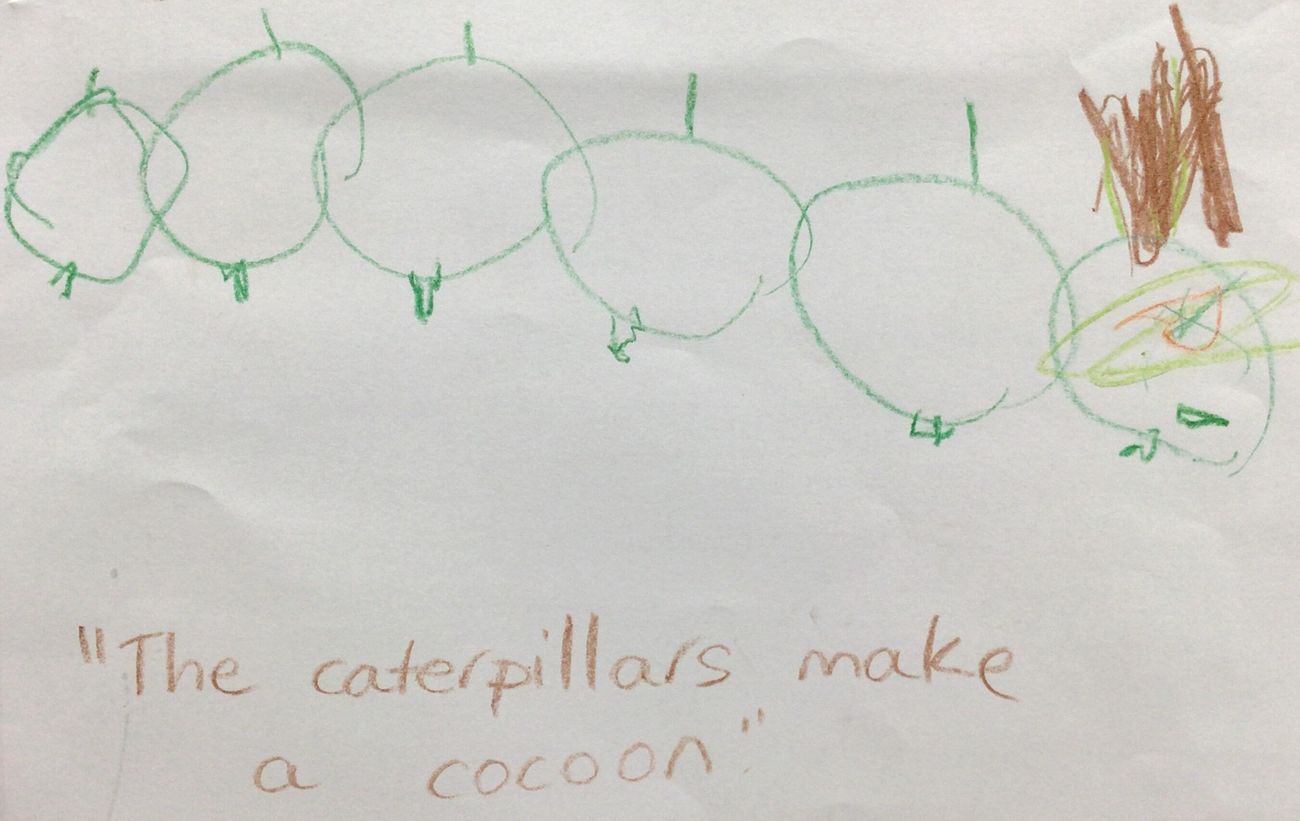 "The caterpillars make
a cocoon."